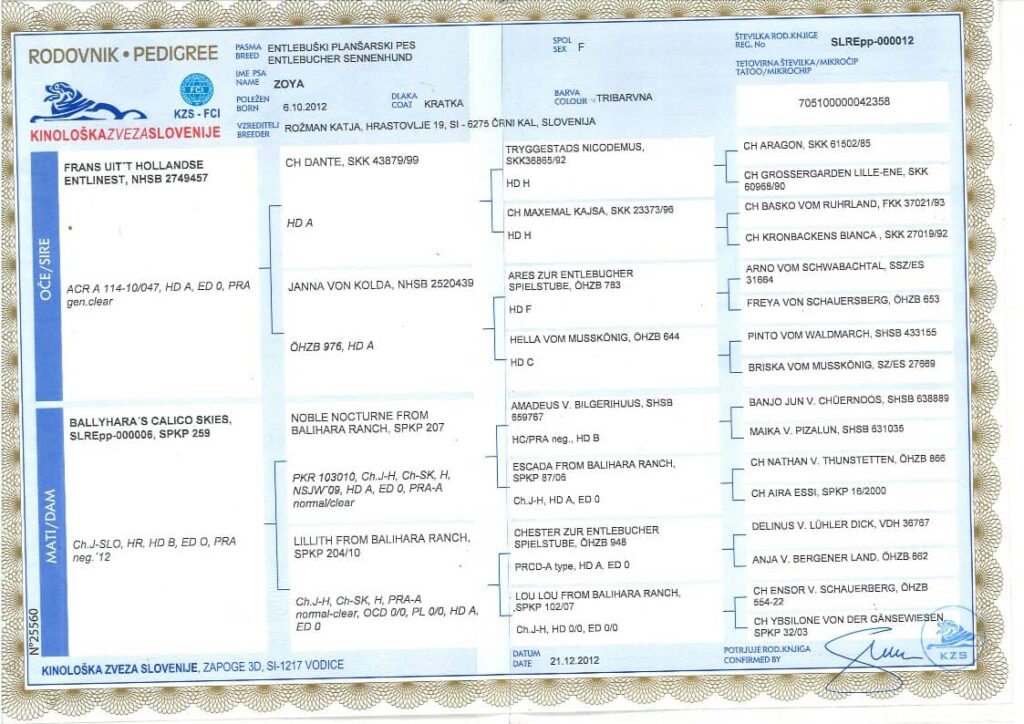 RODOVNIK • PEDIGREE
FCI
KZS - FCI
KINOLOŠKAZVEZASLOVENIJE
PASMA
BREED
ENTLEBUŠKI PLANŠARSKI PES
ENTLEBUCHER SENNENHUND
IME PSA
NAME
ZOYA
POLEŽEN
BORN
6.10.2012
DLAKA
COAT
KRATKA
VZREDITELJ
BREEDER
ROŽMAN KATJA, HRASTOVLJE 19, SI - 6275 ČRNI KAL, SLOVENIJA
SPOL
SEX
F
BARVA
COLOUR
TRIBARVNA
ŠTEVILKA ROD.KNJIGE
REG. No
SLREpp-000012
TETOVIRNA ŠTEVILKA/MIKROČIP
TATOO/MICROCHIP
705100000042358
OČE/SIRE
FRANS UIT'T HOLLANDSE
ENTLINEST, NHSB 2749457
ACR A 114-10/047, HD A, ED 0, PRA
gen.clear
MATI/DAM
BALLYHARA´S CALICO SKIES,
SLREpp-000006, SPKP 259
Ch.J-SLO, HR, HD B, ED O, PRA
neg.´12
CH DANTE, SKK 43879/99
HD A
JANNA VON KOLDA, NHSB 2520439
ÖHZB 976, HD A
NOBLE NOCTURNE FROM
BALIHARA RANCH, SPKP 207
PKR 103010, Ch.J-H, Ch-SK, H,
NSJW´09, HD A, ED 0, PRA-A
normal/clear
LILLITH FROM BALIHARA RANCH,
SPKP 204/10
Ch.J-H, Ch-SK, H, PRA-A
normal-clear, OCD 0/0, PL 0/0, HD A,
ED 0
TRYGGESTADS NICODEMUS,
SKK36865/92
HD H
CH MAXEMAL KAJSA, SKK 23373/96
HD H
ARES ZUR ENTLEBUCHER
SPIELSTUBE, ÖHZB 783
HD F
HELLA VOM MUSSKÖNIG, ÖHZB 644
HD C
AMADEUS V. BILGERIHUUS, SHSB
659767
HC/PRA neg., HD B
ESCADA FROM BALIHARA RANCH,
SPKP 87/06
Ch.J-H, HD A, ED 0
CHESTER ZUR ENTLEBUCHER
SPIELSTUBE, ÖHZB 948
PRCD-A type, HD A, ED 0
LOU LOU FROM BALIHARA RANCH,
,SPKP 102/07
Ch.J-H, HD 0/0, ED 0/0
CH ARAGON, SKK 61502/85
CH GROSSERGARDEN LILLE-ENE, SKK
60968/90
CH BASKO VOM RUHRLAND, FKK 37021/93
CH KRONBACKENS BIANCA , SKK 27019/92
ARNO VOM SCHWABACHTAL, SSZ/ES
31664
FREYA VON SCHAUERSBERG, ÖHZB 653
PINTO VOM WALDMARCH, SHSB 433155
BRISKA VOM MUSSKÖNIG, SZ/ES 27669
BANJO JUN V. CHÜERNOOS, SHSB 638889
MAIKA V. PIZALUN, SHSB 631035
CH NATHAN V. THUNSTETTEN, ÖHZB 866
CH AIRA ESSI, SPKP 16/2000
DELINUS V. LÜHLER DICK, VDH 36767
ANJA V. BERGENER LAND, ÖHZB 862
CH ENSOR V. SCHAUERBERG, ÖHZB
554-22
CH YBSILONE VON DER GÄNSEWIESEN,
SPKP 32/03
N°25560
KINOLOŠKA ZVEZA SLOVENIJE, ZAPOGE 3D, SI-1217 VODICE
DATUM
DATE
21.12.2012
POTRJUJE ROD.KNJIGA
CONFIRMED BY
KZS